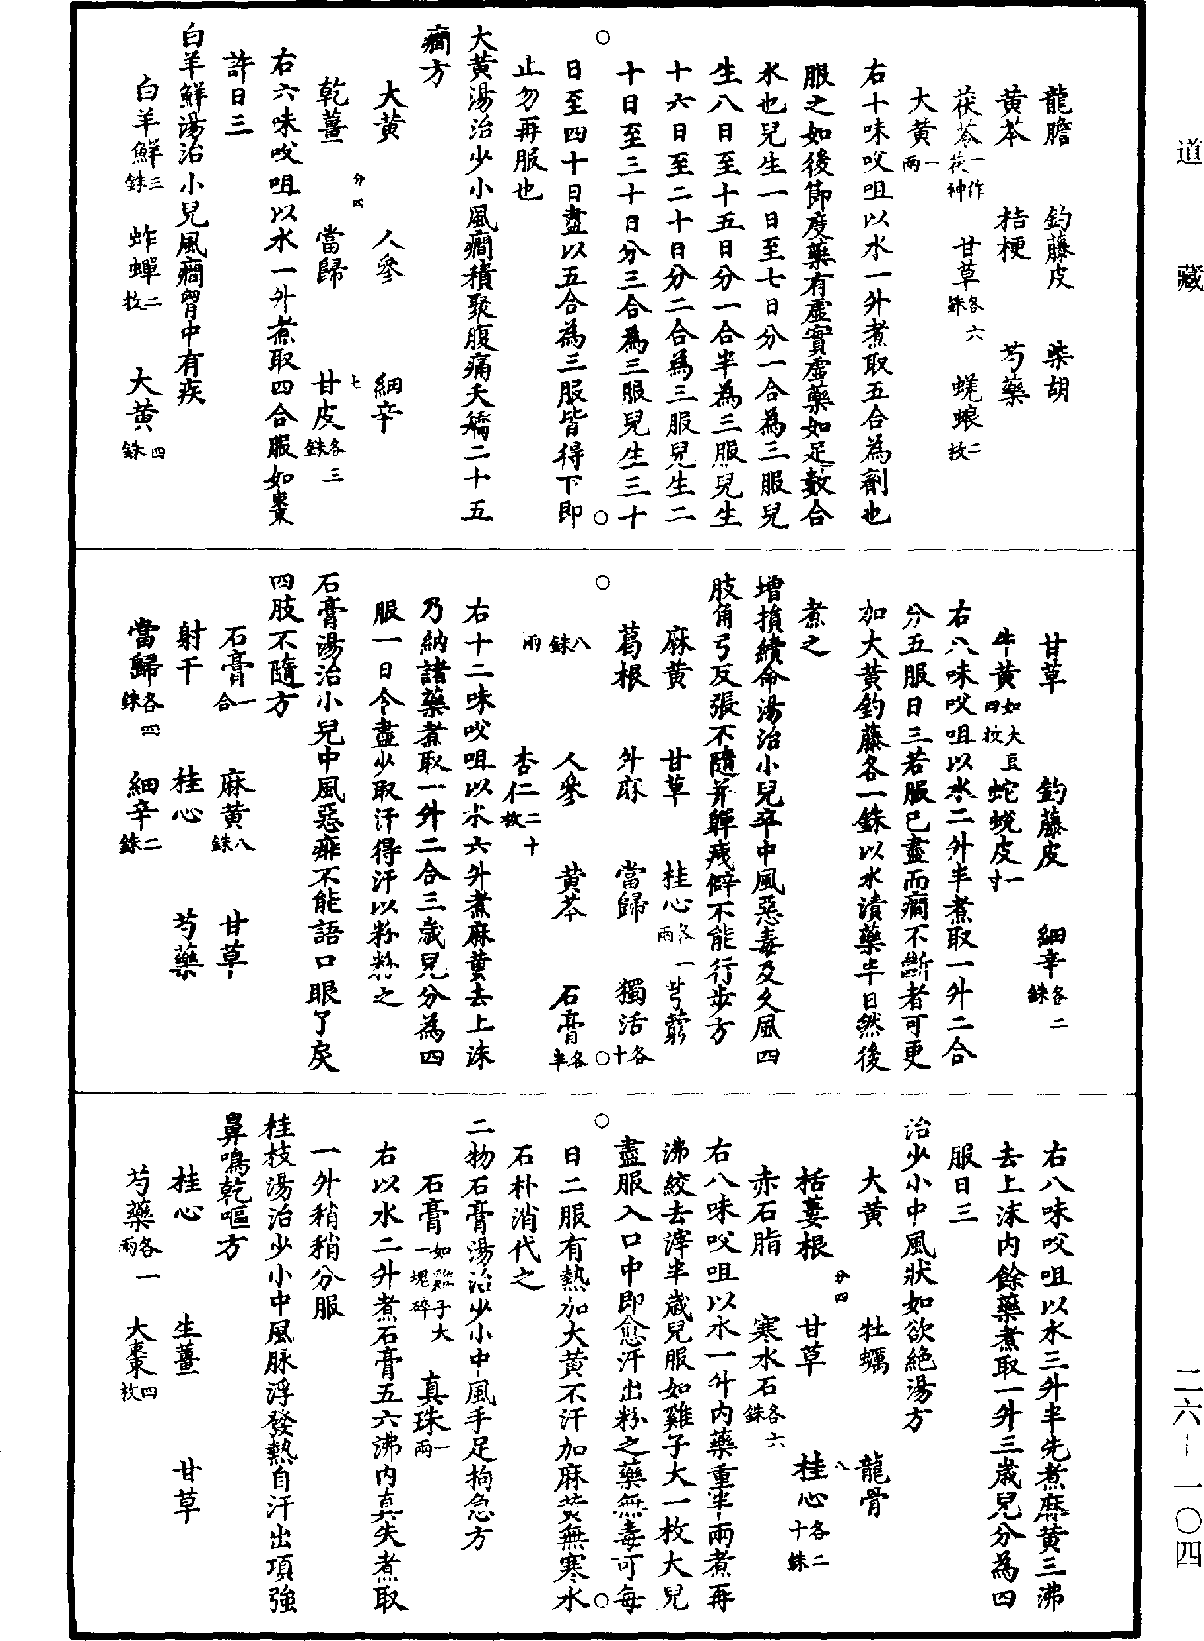 道藏
龍膽 釣藤皮 柴胡
黃芩 桔梗 芍藥
茯苓一作茯神 甘草各六銖 蜣蜋二枚
大黃一兩
右十味㕮咀以水一升煮取五合為劑也
服之如後節度藥有虛實虛藥如足數合
水也兒生一日至七日分一合為三服兒
生八日至十五日分一合半為三服兒生
十六日至二十日分二合為三服兒生二
十日至三十日分三合為三服兒生三十
日至四十日盡以五合為三服皆得下即
止勿再服也
大黃湯治少小風癎積聚腹痛夭矯二十五
癎方
大黃 人參 細辛
乾薑四分 當歸 甘皮各三七銖
右六味㕮咀以水一升煮取四合服如棗
許日三
白羊鮮湯治小兒風癎胷中有疾
白羊鮮三銖 蚱蟬二枚 大黃四銖
甘草 釣藤皮 細辛各二銖
牛黃如大豆四枚 蛇蛻皮一寸
右八味㕮咀以水二升半煮取一升二合
分五服日三若服已盡而癎不斷者可更
加大黃釣藤各一銖以水漬藥半日然後
煮之
增損續命湯治小兒卒中風惡毒及久風四
肢角弓反張不隨并嚲㿏僻不能行步方
麻黃 甘草 桂心各一兩 芎藭
葛根 升麻 當歸 獨活各十八銖
人參 黃芩 石膏各半兩
杏仁二十枚
右十二味㕮咀以水六升煮麻黃去上沫
乃納諸藥煮取一升二合三歲兒分為四
服一日令盡少取汗得汗以粉粉之
石膏湯治小兒中風惡痱不能語口眼了戾
四肢不隨方
石膏一合 麻黃八銖 甘草
射干 桂心 芍藥
當歸各四銖 細辛二銖
右八味㕮咀以水三升半先煮麻黃三沸
去上沫内餘藥煮取一升三歲兒分為四
服日三
治少小中風狀如欲絕湯方
大黃 牡蠣 龍骨
栝蔞根 甘草 桂心各二十八銖
赤石脂 寒水石各六銖
右八味㕮咀以水一升内藥重半兩煮再
沸絞去滓半歲兒服如雞子大一枚大兒
盡服入口中即愈汗出粉之藥無毒可每
日二服有熱加大黃不汗加麻黃無寒水
石朴消代之
二物石膏湯治少小中風手足拘急方
石膏如雞子大一塊碎 真珠一兩
右以水二升煮石膏五六沸内真朱煮取
一升稍稍分服
桂枝湯治少小中風脉浮發熱自汗出項強
鼻鳴乾嘔方
桂心 生薑 甘草
芍藥各一兩 大棗四枚
二六—一〇四